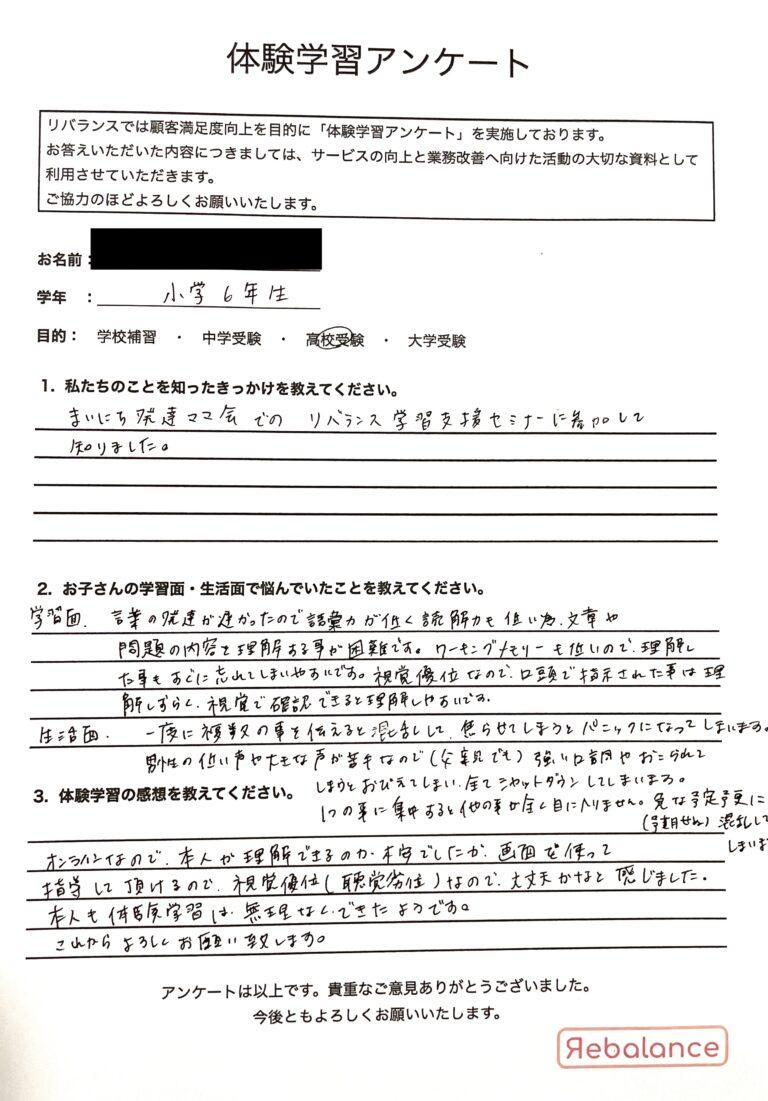 体験学習アンケート
リバランスでは顧客満足度向上を目的に「体験学習アンケート」を実施しております。
お答えいただいた内容につきましては、サービスの向上と業務改善へ向けた活動の大切な資料として
利用させていただきます。
ご協力のほどよろしくお願いいたします。
お名前:
学年 : 小学6年生
目的: 学校補習 ・ 中学受験 ・ 高校受験 ・ 大学受験
1. 私たちのことを知ったきっかけを教えてください。
まいにち発達ママ会での リバランス学習支援セミナーに参加して
知りました。
2. お子さんの学習面・生活面で悩んでいたことを教えてください。
学習面. 言葉の発達が遅かったので語彙力が低く読解力も低い為、文章や
問題の内容を理解する事が困難です。ワーキングメモリーも低いので、理解し
た事もすぐに忘れてしまいやすいです。視覚優位なので、口頭で指示された事は理
解しずらく、視覚で確認できると理解しやすいです。
生活面. 一度に複数の事を伝えると混乱して、焦らせてしまうとパニックになってしまいます。
男性の低い声や大きな声が苦手なので(父親でも)強い口調やおこられて
しまうとおびえてしまい、全てシャットダウンしてしまいます。
1つの事に集中すると他の事が全く目に入りません。急な予定変更に
(予期せん)混乱して
しまいます
3. 体験学習の感想を教えてください。
オンラインなので、本人が理解できるのか不安でしたが、画面を使って
指導して頂けるので、視覚優位(聴覚劣位)なので、大丈夫かなと感じました。
本人も体験学習は、無理なくできたようです。
これからよろしくお願い致します。
アンケートは以上です。貴重なご意見ありがとうございました。
今後ともよろしくお願いいたします。
Rebalance